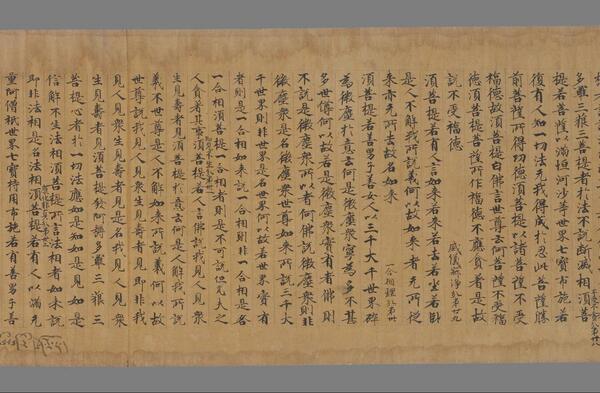 多羅三藐三菩提者於法不說斷滅相須菩
提若菩薩以滿恒河沙等世界七寶布施若
復有人知一切法无我得成於忍此菩薩勝
前菩薩所得功德須菩提以諸菩薩不受
福德故須菩提白佛言世尊云何菩薩不受福
德須菩提菩薩所作福德不應貪著是故
說不受福德 威儀寂淨分第廿九
須菩提若有人言如來若來若去若坐若臥
是人不解我所說義何以故如來者无所從
來亦无所去故名如來 一合相理分第卅
須菩提若善男子善女人以三千大千世界碎
為微塵於意云何是微塵衆寧為多不甚
多世尊何以故若是微塵衆實有者佛則
不說是微塵衆所以者何佛說微塵衆則非
微塵衆是名微塵衆世尊如來所說三千大
千世界則非世界是名世界何以故若世界實有
者則是一合相如來說一合相則非一合相是名
一合相須菩提一合相者則是不可說但凡夫之
人貪著其事須菩提若人言佛說我見人見衆
生見壽者見須菩提於意云何是人解我所說
義不世尊是人不解如來所說義何以故
世尊說我見人見衆生見壽者見即非我
見人見衆生見壽者見是名我見人見衆
生見壽者見須菩提發阿耨多羅三藐三
菩提心者於一切法應如是知如是見如是
信解不生法相須菩提所言法相者如來說
即非法相是名法相須菩提若有人以滿无
量阿僧祇世界七寶持用布施若有善男子善